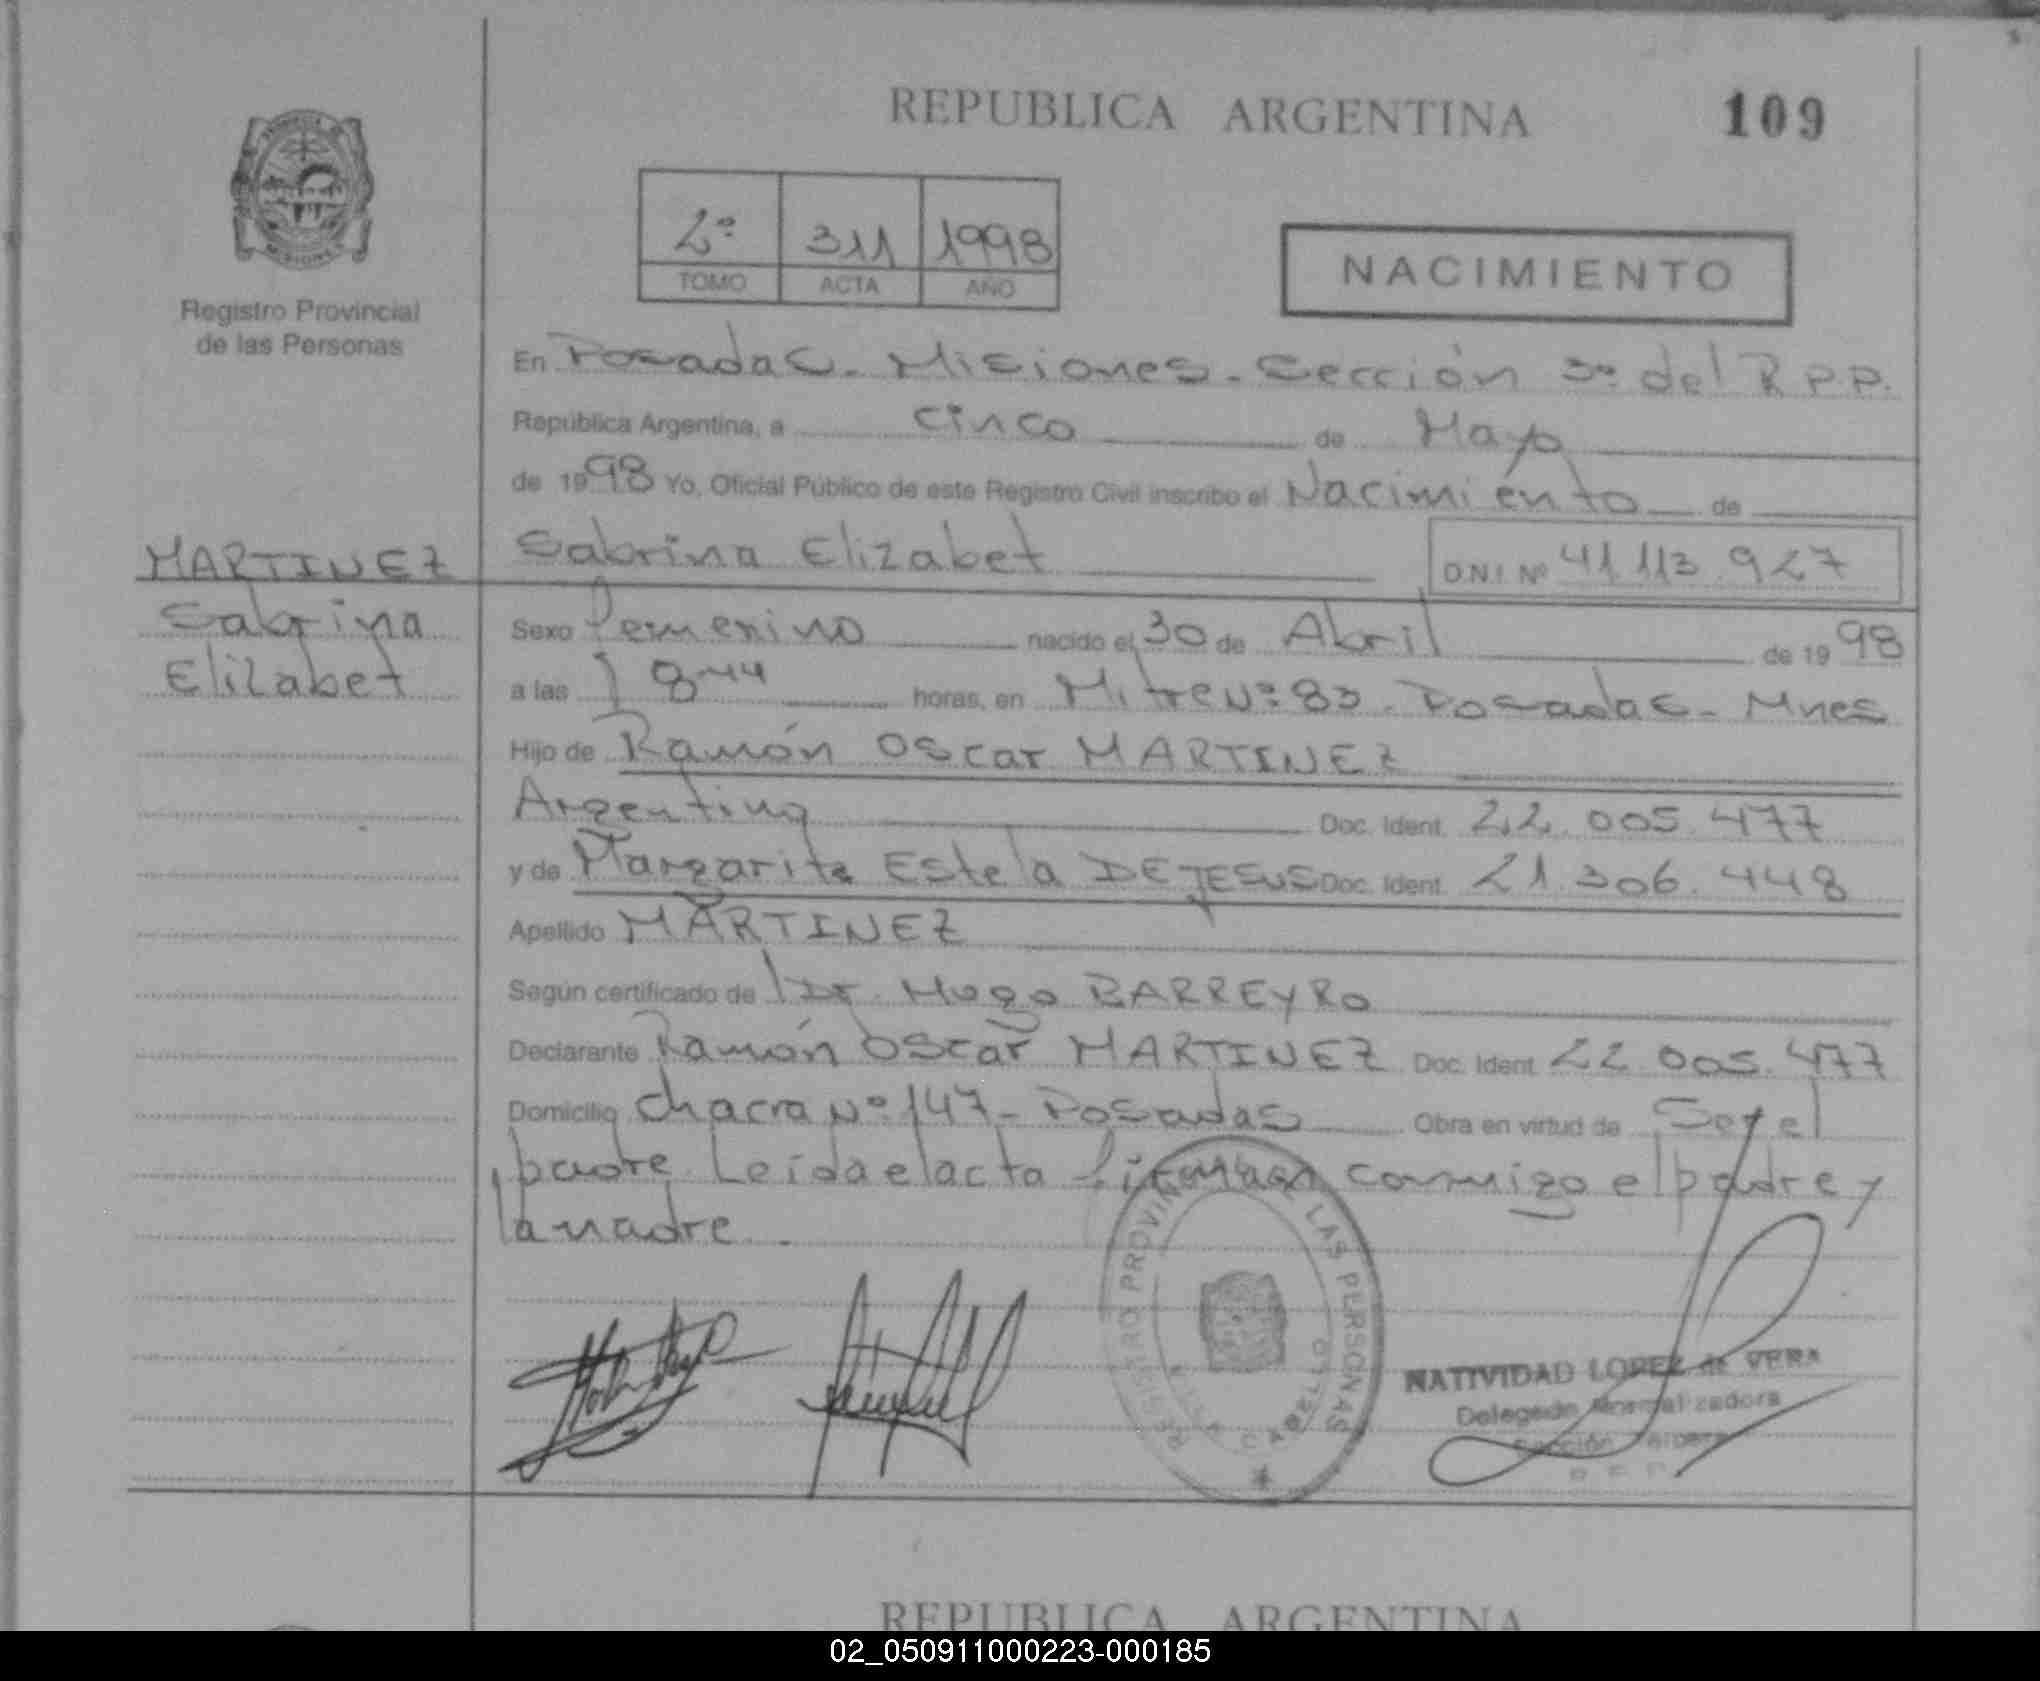 REPUBLICA ARGENTINA
109
2º 311 1998
TOMO ACTA AÑO
NACIMIENTO
Registro Provincial
de las Personas
En Posadas - Misiones - Sección 3º del R.P.P.
República Argentina, a cinco de Mayo
de 1998 Yo, Oficial Público de este Registro Civil inscribo el Nacimiento de
MARTINEZ
Sabrina
Elizabet
Sabrina Elizabet
D.N.I. Nº 41.113.927
Sexo Femenino nacido el 30 de Abril de 1998
a las 8 44 horas, en Mitre Nº 83 - Posadas - Mnes
Hijo de Ramón Oscar MARTINEZ
Argentina Doc. Ident. 22.005.477
y de Margarita Estela DE JESUS Doc. Ident. 21.306.448
Apellido MARTINEZ
Según certificado de Dr. Hugo BARREYRO
Declarante Ramón Oscar MARTINEZ Doc. Ident. 22.005.477
Domicilio Chacra Nº 147 - Posadas Obra en virtud de Ser el
padre. Leída el acta firman conmigo el padre y
la madre.
REGISTRO PROVINCIAL LAS PERSONAS
CABELLO
NATIVIDAD LOPEZ de VERA
Delegada Normalizadora
Sección Tercera
R.P.P.
REPUBLICA ARGENTINA
02_050911000223-000185